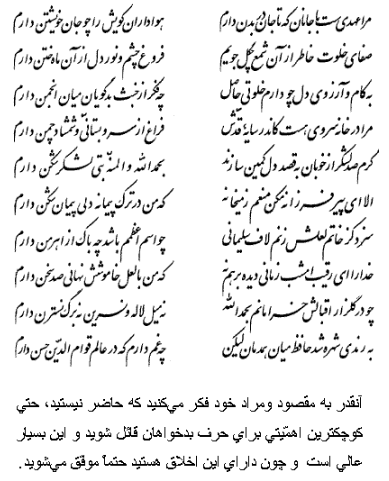 مرا عهدیست با جانان که تا جان در بدن دارم هواداران کویش را چو جان خویشتن دارم
صفای خلوت خاطر از آن شمع چگل جویم فروغ چشم و نور دل از آن ماه ختن دارم
به کام و آرزوی دل چو دارم خلوتی حاصل چه فکر از خبث بدگویان میان انجمن دارم
مرا در خانه سروی هست کاندر سایهٔ قدش فراغ از سرو بستانی و شمشاد چمن دارم
گرم صد لشکر از خوبان به قصد دل کمین سازند بحمدالله والمنه بتی لشکرشکن دارم
الا ای پیر فرزانه مکن منعم ز میخانه که من در ترک پیمانه دلی پیمان شکن دارم
سزد کز خاتم لعلش زنم لاف سلیمانی چو اسم اعظمم باشد چه باک از اهرمن دارم
خدا را ای رقیب امشب زمانی دیده بر هم نه که من با لعل خاموشش نهانی صد سخن دارم
چو در گلزار اقبالش خرامانم بحمدالله نه میل لاله و نسرین نه برگ نسترن دارم
به رندی شهره شد حافظ میان همدمان لیکن چه غم دارم که در عالم قوام الدین حسن دارم
آنقدر به مقصود ومراد خود فکر مي‌کنید که حاضر نیستید، حتي
کوچکترین اهمّیتي براي حرف بدخواهان قائل شوید و این بسیار
عالي است و چون داراي این اخلاق هستید حتماً موفق مي‌شوید.